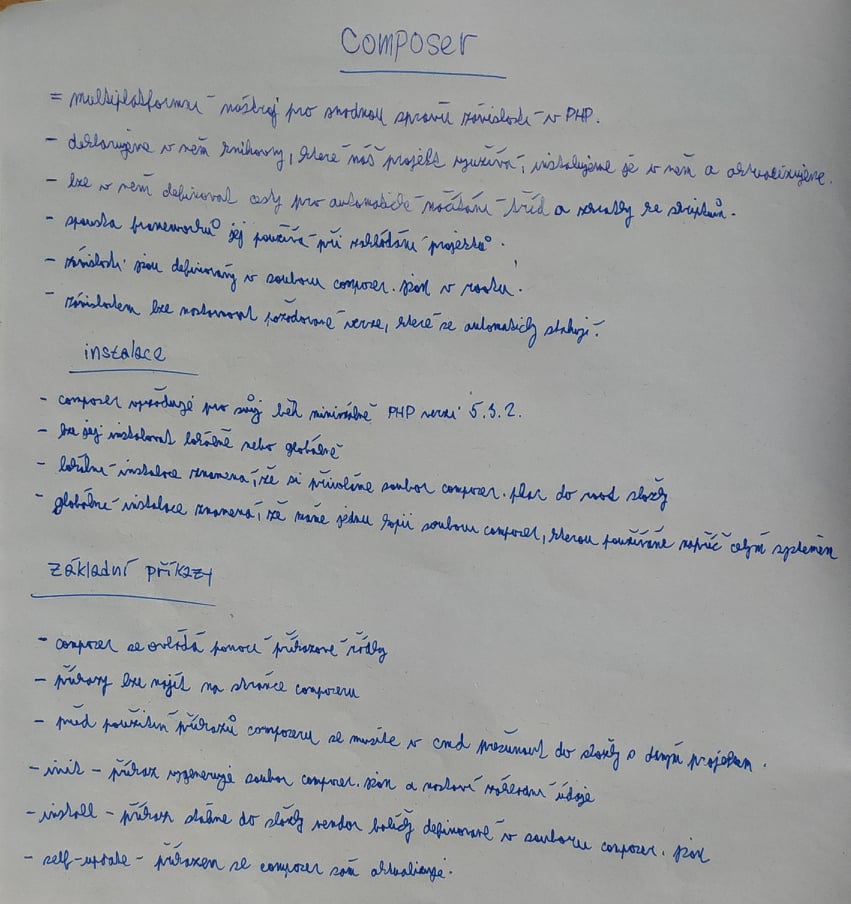 Composer
= multiplatformní nástroj pro snadnou správu závislostí v PHP.
- deklarujeme v něm knihovny, které náš projekt využívá, instalujeme je v něm a aktualizujeme.
- lze v něm definovat cesty pro automatické načítání tříd a zkratky ke skriptům.
- spousta frameworků jej používá při zakládání projektů.
- závislosti jsou definovány v souboru composer.json v rootu.
- závislostem lze nastavovat požadované verze, které se automaticky stahují.
instalace
- composer vyžaduje pro svůj běh minimálně PHP verzi 5.3.2.
- lze jej instalovat lokálně nebo globálně
- lokální instalace znamená, že si přivoláme soubor composer.phar do root složky
- globální instalace znamená, že máme jednu kopii souboru composer, kterou používáme napříč celým systémem
základní příkazy
- composer se ovládá pomocí příkazové řádky
- příkazy lze najít na stránce composeru
- před použitím příkazů composeru se musíte v cmd přesunout do složky s daným projektem.
- init - příkaz vygeneruje soubor composer.json a nastaví základní údaje
- install - příkaz stáhne do složky vendor balíčky definované v souboru composer.json
- self-update - příkazem se composer sám aktualizuje.